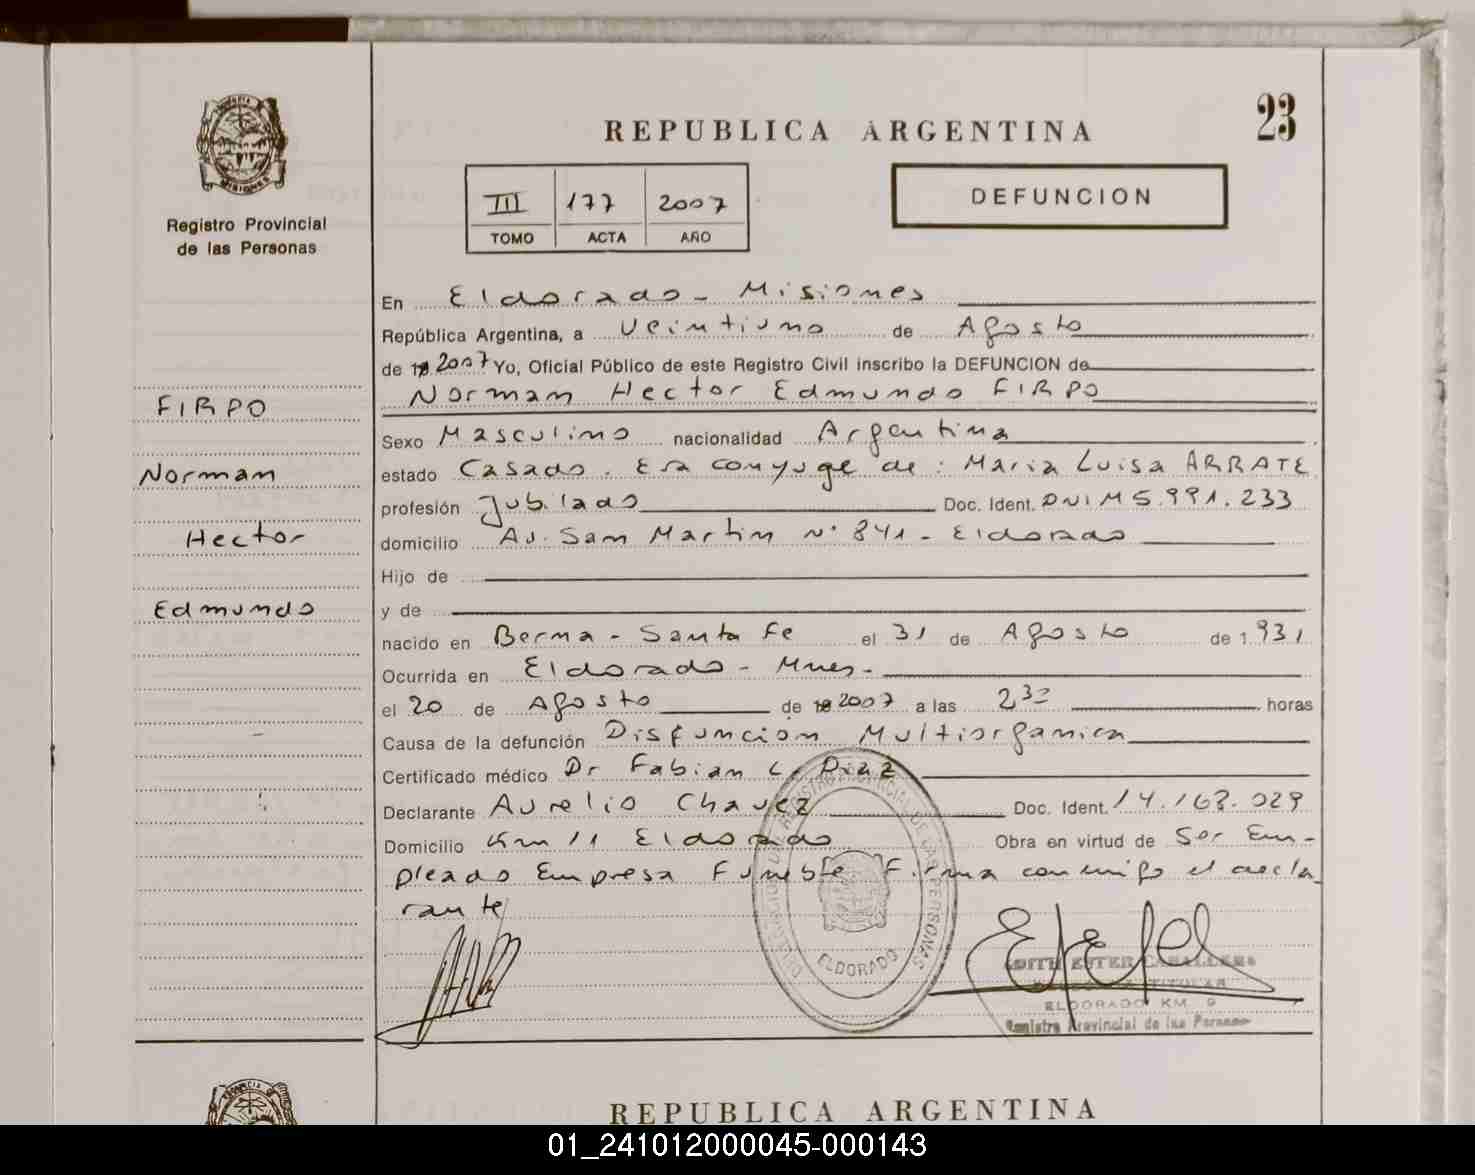 23
REPUBLICA ARGENTINA
PROVINCIA DE
MISIONES
Registro Provincial
de las Personas
III 177 2007
TOMO ACTA AÑO
DEFUNCION
En Eldorado - Misiones
República Argentina, a veintiuno de Agosto
de 2007 Yo, Oficial Público de este Registro Civil inscribo la DEFUNCION de
Norman Hector Edmundo FIRPO
FIRPO
Norman
Hector
Edmundo
Sexo Masculino nacionalidad Argentina
estado Casado. Era conyuge de: Maria Luisa ARRATE
profesión Jubilado Doc. Ident. DNI M 5.991.233
domicilio Av. San Martin N° 841 - Eldorado
Hijo de
y de
nacido en Berna - Santa Fe el 31 de Agosto de 1.931
Ocurrida en Eldorado - Mnes.
el 20 de Agosto de 2007 a las 2 30 horas
Causa de la defunción Disfunción Multiorganica
Certificado médico Dr Fabian L. Diaz
Declarante Aurelio Chavez Doc. Ident. 14.163.029
Domicilio Km 11 Eldorado Obra en virtud de Ser Em-
pleado Empresa Funebre Firma conmigo el decla
rante
DELEGACION DEL REGISTRO PROVINCIAL DE LAS PERSONAS
ELDORADO
EDITH ESTER CABALLERO
TITULAR
ELDORADO KM. 9
Registro Provincial de las Personas
REPUBLICA ARGENTINA
PROVINCIA DE
01_241012000045-000143